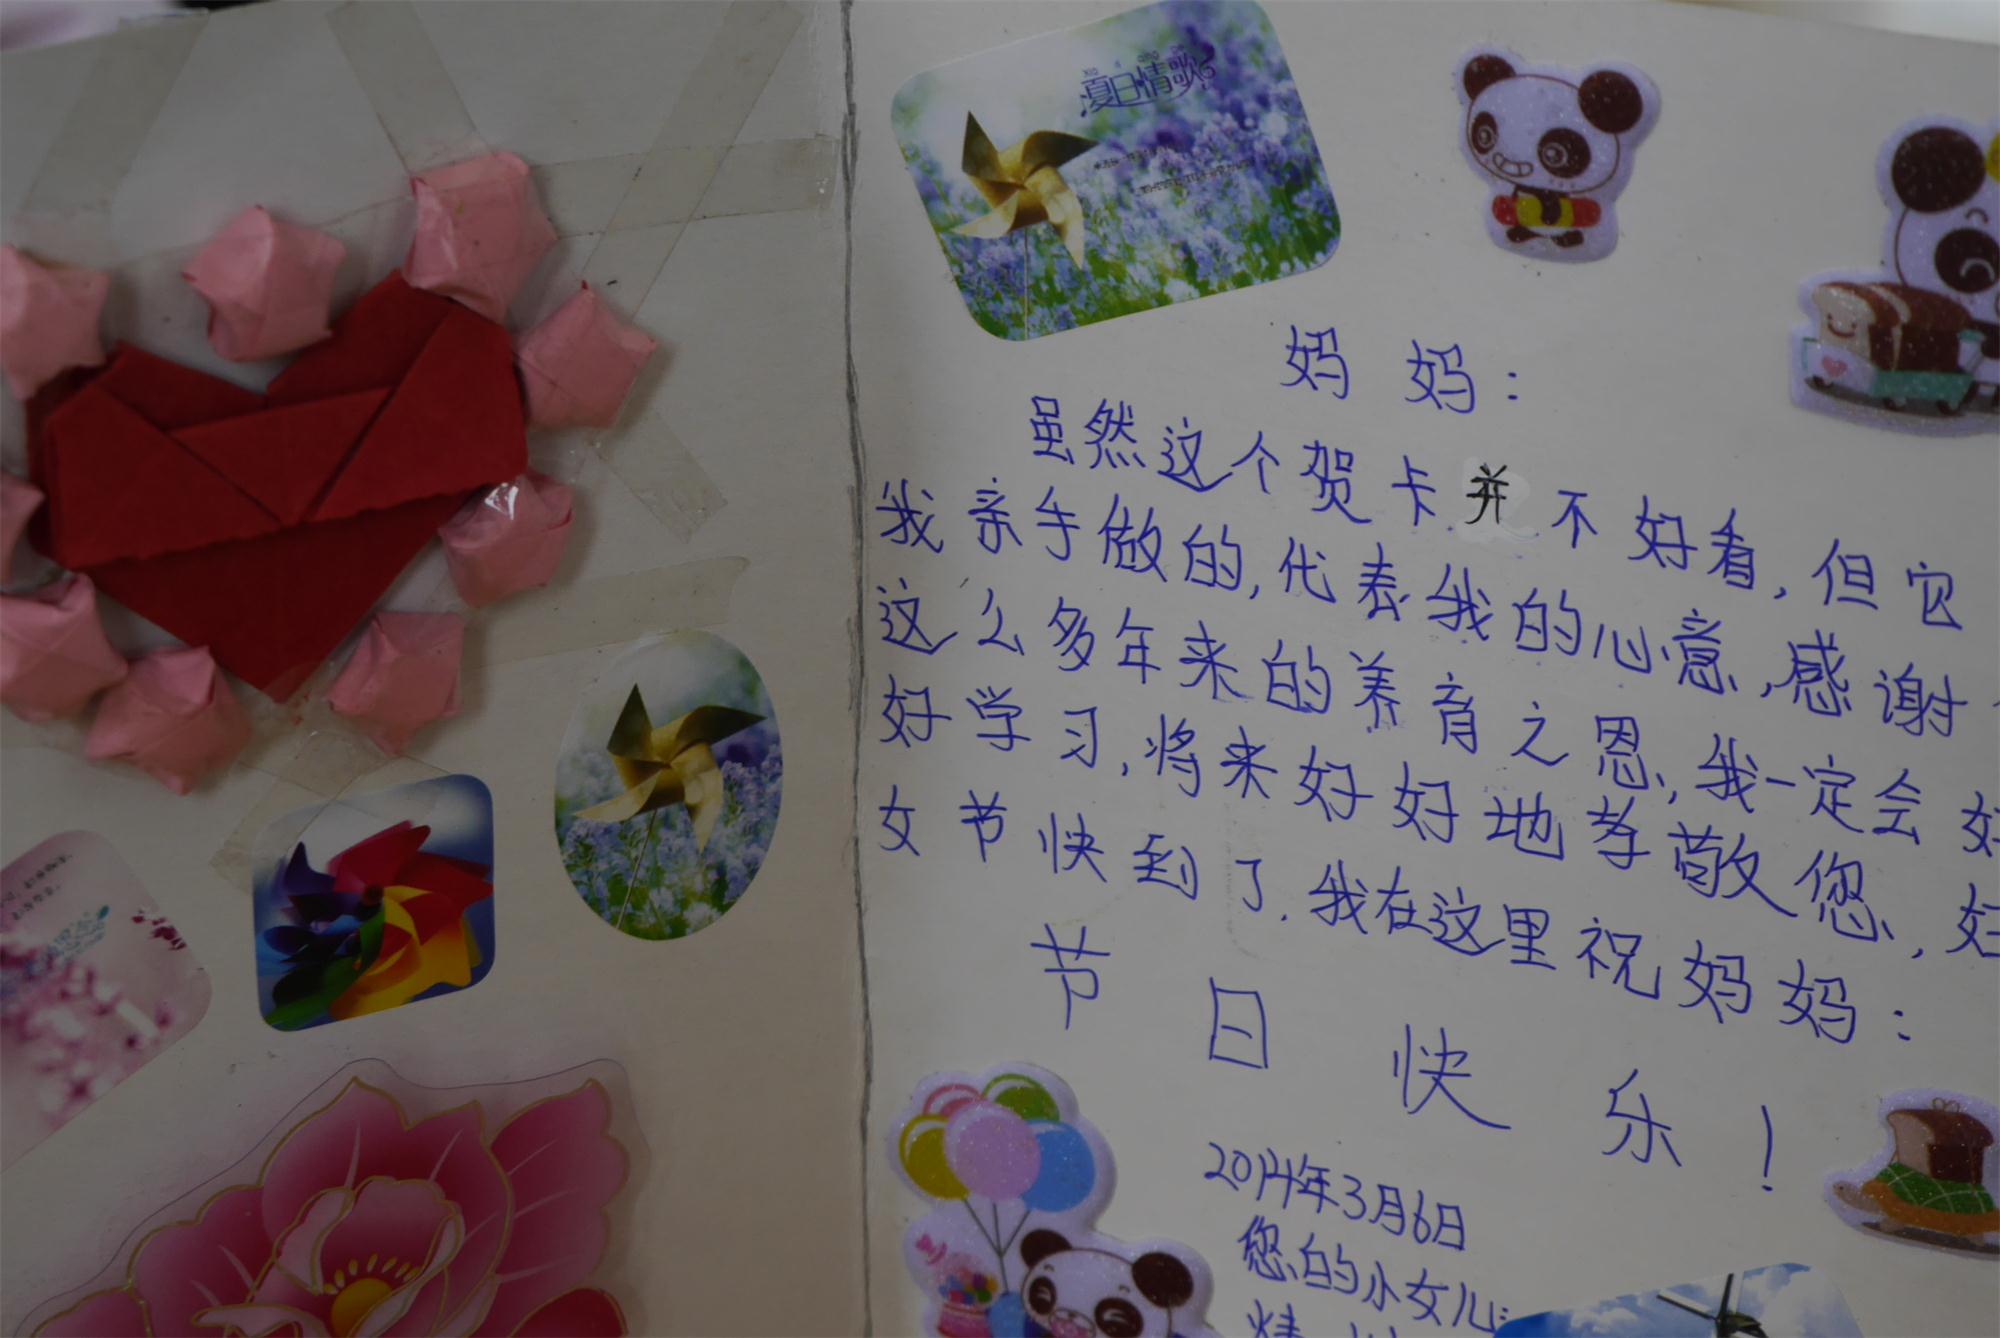 夏日情歌
妈妈:
虽然这个贺卡并不好看,但它
我亲手做的,代表我的心意,感谢
这么多年来的养育之恩,我一定会好
好学习,将来好好地孝敬您,好
女节快到了.我在这里祝妈妈:
节日快乐!
2014年3月6日
您的小女儿: